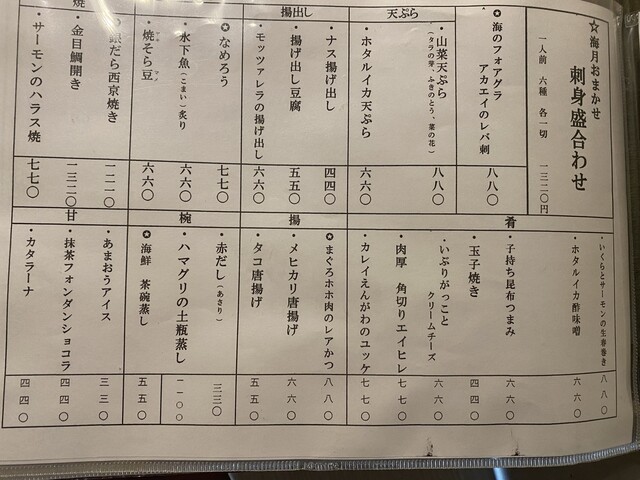 ☆海月おまかせ
刺身盛合わせ
一人前 六種 各一切 一三二〇円
✪海のフォアグラ
アカエイのレバ刺 八八〇
天ぷら
・山菜天ぷら
(タラの芽、ふきのとう、菜の花) 八八〇
・ホタルイカ天ぷら 六六〇
揚出し
・ナス揚げ出し 四四〇
・揚げ出し豆腐 五五〇
・モッツァレラの揚げ出し 六六〇
焼
✪なめろう 七七〇
・氷下魚(こまい)炙り 六六〇
・焼そら豆 六六〇
銀だら西京焼き 一二一〇
・金目鯛開き 一三二〇
・サーモンのハラス焼 七七〇
肴
・いくらとサーモンの生春巻き 八八〇
・ホタルイカ酢味噌 六六〇
・子持ち昆布つまみ 六六〇
・玉子焼き 四四〇
・いぶりがっこと
クリームチーズ 六六〇
・肉厚 角切りエイヒレ 七七〇
・カレイえんがわのユッケ 七七〇
揚
✪まぐろホホ肉のレアかつ 八八〇
・メヒカリ唐揚げ 六六〇
・タコ唐揚げ 五五〇
椀
・赤だし(あさり) 三三〇
・ハマグリの土瓶蒸し 一一〇〇
✪海鮮 茶碗蒸し 五五〇
甘
・あまおうアイス 三三〇
・抹茶フォンダンショコラ 四四〇
・カタラーナ 四四〇